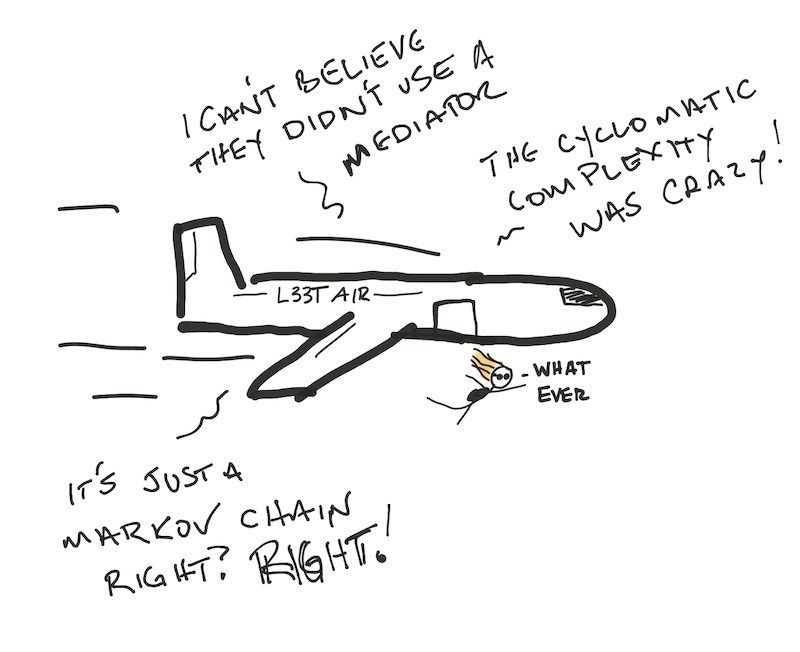 I CAN'T BELIEVE
THEY DIDN'T USE A
MEDIATOR
THE CYCLOMATIC
COMPLEXITY
WAS CRAZY!
L33T AIR
- WHAT
EVER
IT'S JUST A
MARKOV CHAIN
RIGHT? RIGHT!